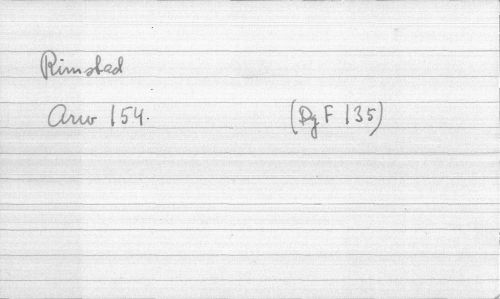 Rimstad
Arw 154. (Dg F 135)